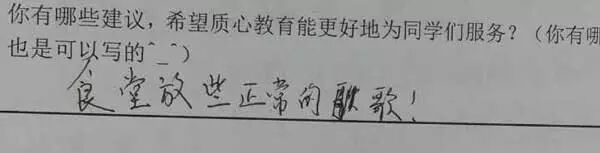 你有哪些建议，希望质心教育能更好地为同学们服务？（你有哪
也是可以写的^_^）
食堂放些正常的歌！